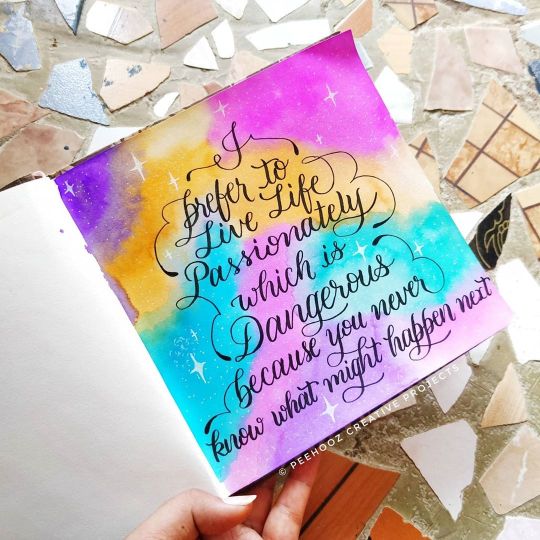 I
prefer to
Live Life
Passionately
which is
Dangerous
because you never
know what might happen next
© PEEHOOZ CREATIVE PROJECTS